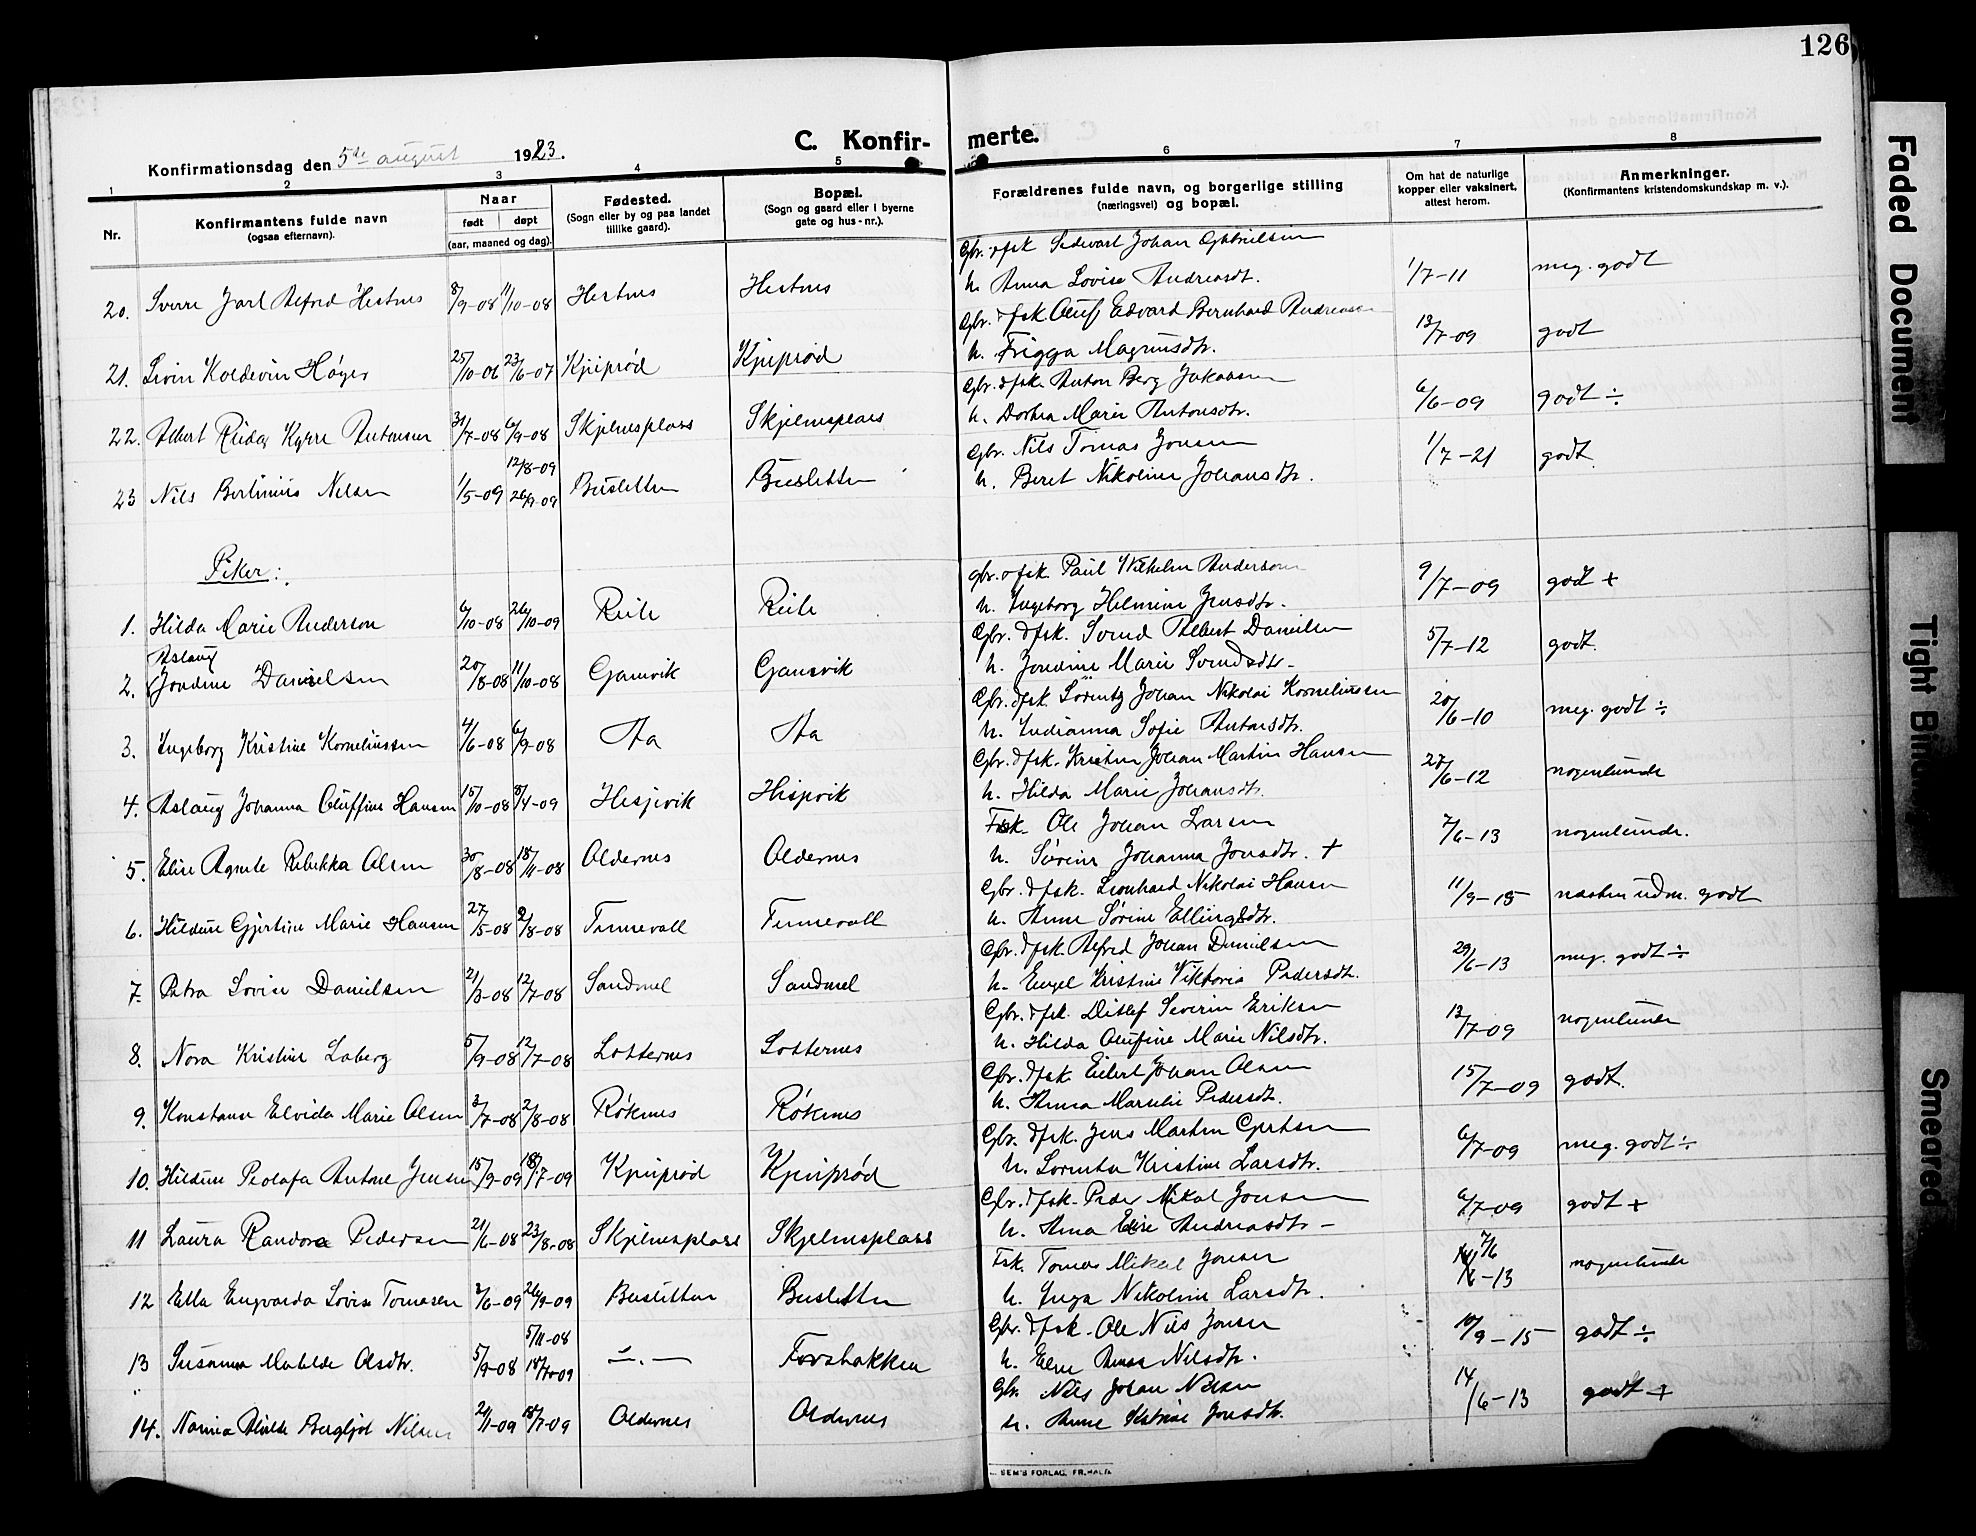 126
C. Konfir-
merte.
Konfirmationsdag den 5te august 1923.
1 2 3 4 5 6 7 8
Nr.
Konfirmantens fulde navn
(ogsaa efternavn).
Naar
født døpt
(aar, maaned og dag).
Fødested.
(Sogn eller by og paa landet
tillike gaard).
Bopæl.
(Sogn og gaard eller i byerne
gate og hus-nr.).
Forældrenes fulde navn, og borgerlige stilling
(næringsvei) og bopæl.
Om hat de naturlige
kopper eller vaksinert,
attest herom.
Anmerkninger.
(Konfirmantens kristendomskundskap m. v.).
Gbr. o fsk Sedevart Johan Gabrielsen
20. Sverre Jarl Alfred Hestnes 8/9-08 11/10-08 Hestnes Hestnes h. Anna Lovise Andreasdt. 1/7-11 meg. godt
Gbr. & fsk. Oluf Edvard Bernhard Andreassen
21. Koldevin Høyer 25/10-06 23/6-07 h. Frigga Magnusdtr. 13/7-09 godt
Gbr. & fsk. Anton Berg Jakobsen
22. Albert Kyrre Antonsen 31/7-08 6/9-08 Skjelnesplass Skjelnesplass h. Dorthea Marie Antonsdtr. 6/6-09 godt ÷
Gbr. Nils Tomas Jonsen
12/8-09
23 Nils Bertinius Nilsen 1/5-09 26/9-09 Busletten Busletten h. Beret Nikoline Johansdtr. 1/7-21 godt
Piker:
gbr. o fsk. Paul Vilhelm Anderson
1. Hilda Marie Anderson 6/10-08 26/10-09 h. Ingeborg Helmine Jensdtr. 9/7-09 godt +
Gbr. & fsk. Svend Albert Danielsen
Aslaug
2. Jondine Danielsen 20/8-08 11/10-08 Gamvik Gamvik h. Jondine Marie Svendsdtr- 5/7-12 godt.
Gbr. & fsk. Lorentz Johan Nikolai Korneliussen
3. Ingeborg Kristine Korneliussen 4/6-08 6/9-08 Aa Aa h. Indianna Sofie Antonsdtr. 20/6-10 meg. godt ÷
Gbr. & fsk. Kristen Johan Martin Hansen
4. Aslaug Johanna Oluffine Hansen 15/10-08 8/4-09 Hesjevik Hesjevik h. Hilda Marie Johansdtr. 27/6-12 nogenlunde
Fsk. Ole Johan Larsen
5. Elise Agnete Rebekka Olsen 30/8-08 18/11-08 Oldernes Oldernes h. Sørine Johanna Jonsdtr. + 7/6-13 nogenlunde.
Gbr. & fsk. Leonhard Nikolai Hansen
6. Hildine Gjertine Marie Hansen 27/5-08 2/8-08 Tennevoll Tennevoll h. Anne Sørine Ellingsdtr. 11/9-15 næsten udm. godt
Gbr. & fsk. Alfred Johan Danielsen
7. Petra Lovise Danielsen 21/3-08 12/7-08 Sandmel Sandmel h. Engel Kristine Viktoria Pedersdtr. 29/6-13 meg. godt ÷
Gbr. & fsk. Ditlef Severin Eriksen
8. Nora Kristine Loberg 5/9-08 12/7-08 Lotternes Lotternes h. Hilda Olufine Marie Nilsdtr. 13/7-09 nogenlunde
Gbr. & fsk Eilert Johan Olsen
9. Konstanse Elvida Marie Olsen 3/7-08 2/8-08 Røkenes Røkenes h. Anna Marselie Pedersdt. 15/7-09 godt.
Gbr. & fsk. Jens Martin Gjertsen
10. Hildine Peolafa Antone Jensen 15/3-09 18/7-09 h. Lorentse Kristine Larsdtr. 6/7-09 meg. godt ÷
Gbr. & fsk. Peder Mikal Jonsen
11 Laura Randora Pedersen 21/6-08 23/8-08 Skjelnesplass Skjelnesplass h. Anna Elise Andreasdtr - 6/7-09 godt +
Fsk. Tomas Mikal Jonsen 7/6
12 Ella Engvarda Lovise Tomasen 2/6-09 26/9-09 Busletten Busletten h. Inga Nikoline Larsdtr. 6-13 nogenlunde
5/11-08 Gbr. & fsk. Ole Nils Jonsen
13 Susanna Matilde Olsdtr. 5/9-08 18/7-09 -"- Forsbakken h. Elen Anna Nilsdtr. 10/9-15 godt ÷
Gbr. Nils Johan Nilsen
14. Narina Alvilde Bergljot Nilsen 2/1-09 18/7-09 Oldernes Oldernes h. Anne Katrine Jonsdtr. 14/6-13 godt +
SEM'S FORLAG, FR.HALD.
Faded Document
Tight
Smeared